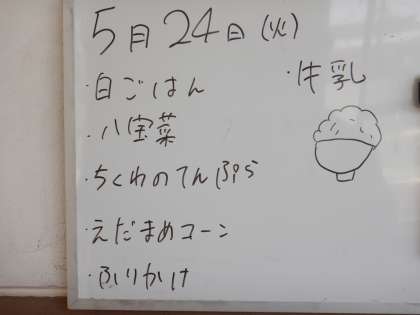 5月24日(火)
・白ごはん
・八宝菜
・ちくわのてんぷら
・えだまめコーン
・ふりかけ
・牛乳